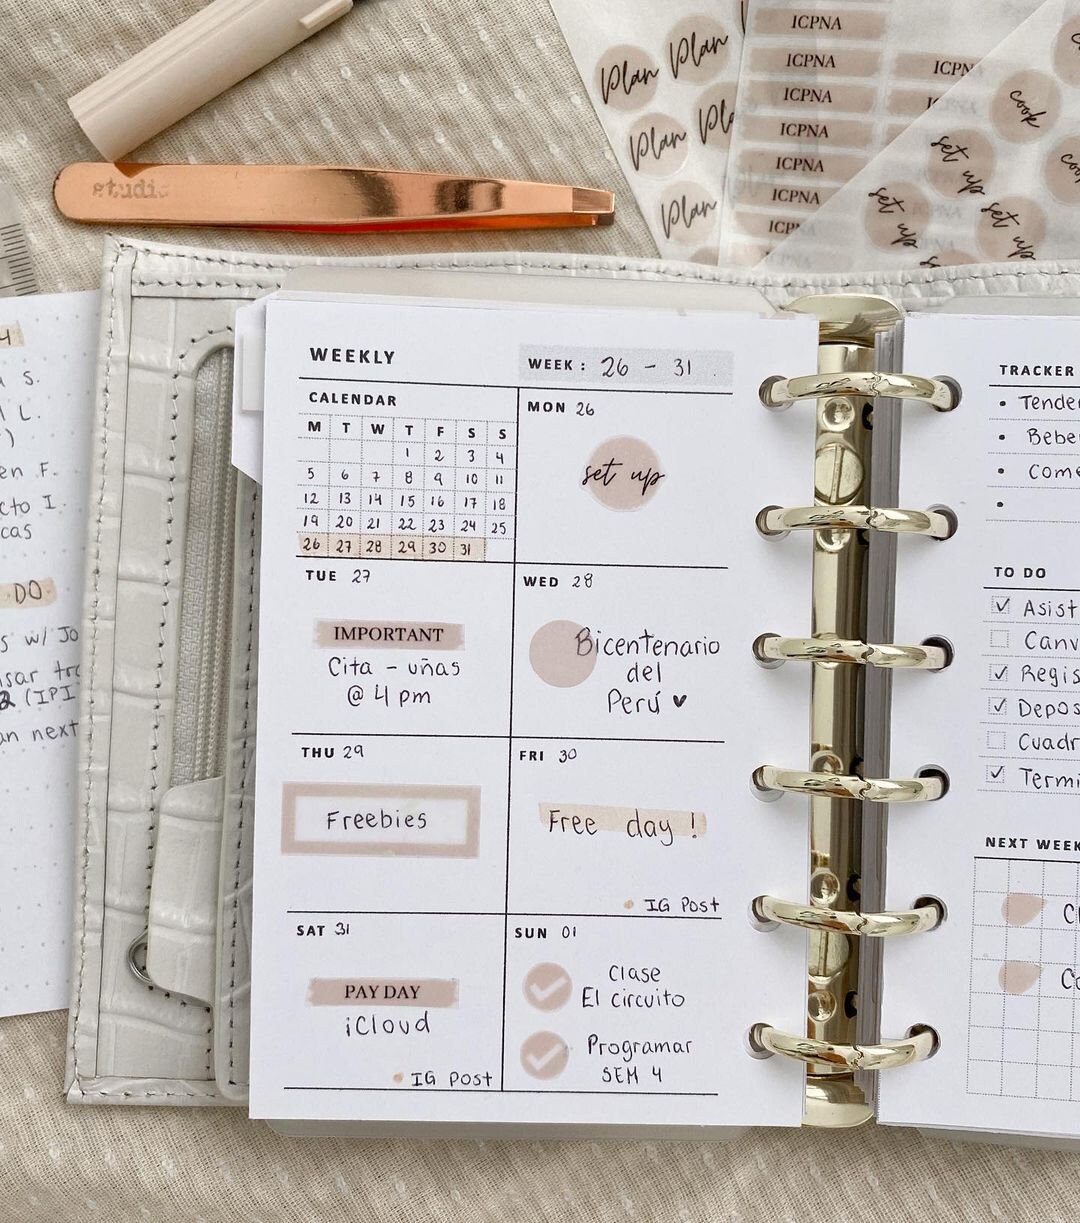 Plan Plan
Plan
Plan
ICPNA
ICPNA
ICPNA
ICPNA
ICPNA
ICPNA
cook
set up
set up
set up
studio
WEEKLY
WEEK: 26 - 31.
CALENDAR
M T W T F S S
1 2 3 4
5 6 7 8 9 10 11
12 13 14 15 16 17 18
19 20 21 22 23 24 25
26 27 28 29 30 31
MON 26
set up
TUE 27
IMPORTANT
Cita - uñas
@ 4 pm
WED 28
Bicentenario
del
Perú ♥
THU 29
Freebies
FRI 30
Free day!
• IG Post
SAT 31
PAY DAY
iCloud
• IG Post
SUN 01
Clase
El circuito
Programar
SEM 4
TRACKER
• Tende
• Bebe
• Come
TO DO
Asist
Canv
Regis
Depos
Cuadr
Termi
NEXT WEEK
4
S.
L.
en F.
cto I.
cas
DO
s w/ Jo
isar tra
(IPI
an next